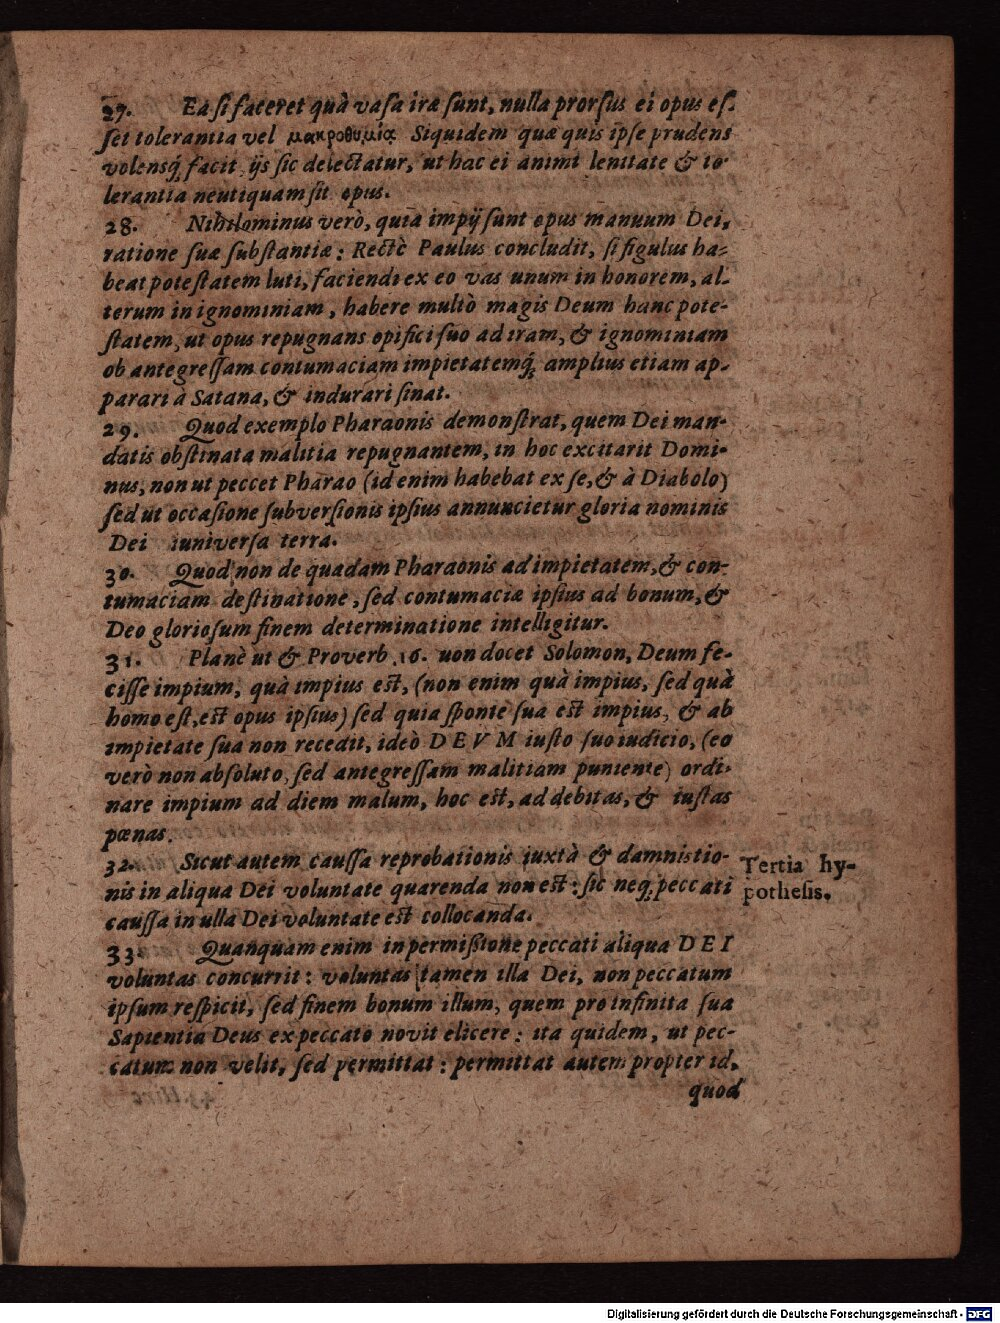 27. Ea si faceret quà vasa iræ sunt, nulla prorsus ei opus es-
set tolerantia vel μακροθυμία Siquidem quæ quis ipse prudens
volensq́; facit, ijs sic delectatur, ut hac ei animi lenitate & to-
lerantia neutiquam sit opus.
28. Nihilominus verò, quia impij sunt opus manuum Dei,
ratione suæ substantiæ: Rectè Paulus concludit, si figulus ha-
beat potestatem luti, faciendi ex eo vas unum in honorem, al-
terum in ignominiam, habere multò magis Deum hanc pote-
statem, ut opus repugnans opifici suo ad iram, & ignominiam
ob antegressam contumaciam impietatemq́; amplius etiam ap-
parari à Satana, & indurari sinat.
29. Quod exemplo Pharaonis demonstrat, quem Dei man-
datis obstinata malitia repugnantem, in hoc excitarit Domi-
nus, non ut peccet Pharao (id enim habebat ex se, & à Diabolo)
sed ut occasione subversionis ipsius annuncietur gloria nominis
Dei iuniversa terra.
30. Quod non de quadam Pharaonis ad impietatem, & con-
tumaciam destinatione, sed contumaciæ ipsius ad bonum, &
Deo gloriosum finem determinatione intelligitur.
31. Planè ut & Proverb. 16. uon docet Solomon, Deum fe-
cisse impium, quà impius est, (non enim quà impius, sed quà
homo est, est opus ipsius) sed quia sponte sua est impius, & ab
impietate sua non recedit, ideò DEVM iusto suo iudicio, (eo
verò non absoluto, sed antegressam malitiam puniente) ordi-
nare impium ad diem malum, hoc est, ad debitas, & iustas
pœnas.
32. Sicut autem caussa reprobationis iuxtà & damnistio-
nis in aliqua Dei voluntate quærenda non est: sic neq; peccati
caussa in ulla Dei voluntate est collocanda.
Tertia hy-
pothesis.
33. Quanquam enim in permißione peccati aliqua DEI
voluntas concurrit: voluntas tamen illa Dei, non peccatum
ipsum respicit, sed finem bonum illum, quem pro infinita sua
Sapientia Deus ex peccato novit elicere: ita quidem, ut pec-
catum non velit, sed permittat: permittat autem propter id,
quod
Digitalisierung gefördert durch die Deutsche Forschungsgemeinschaft - DFG